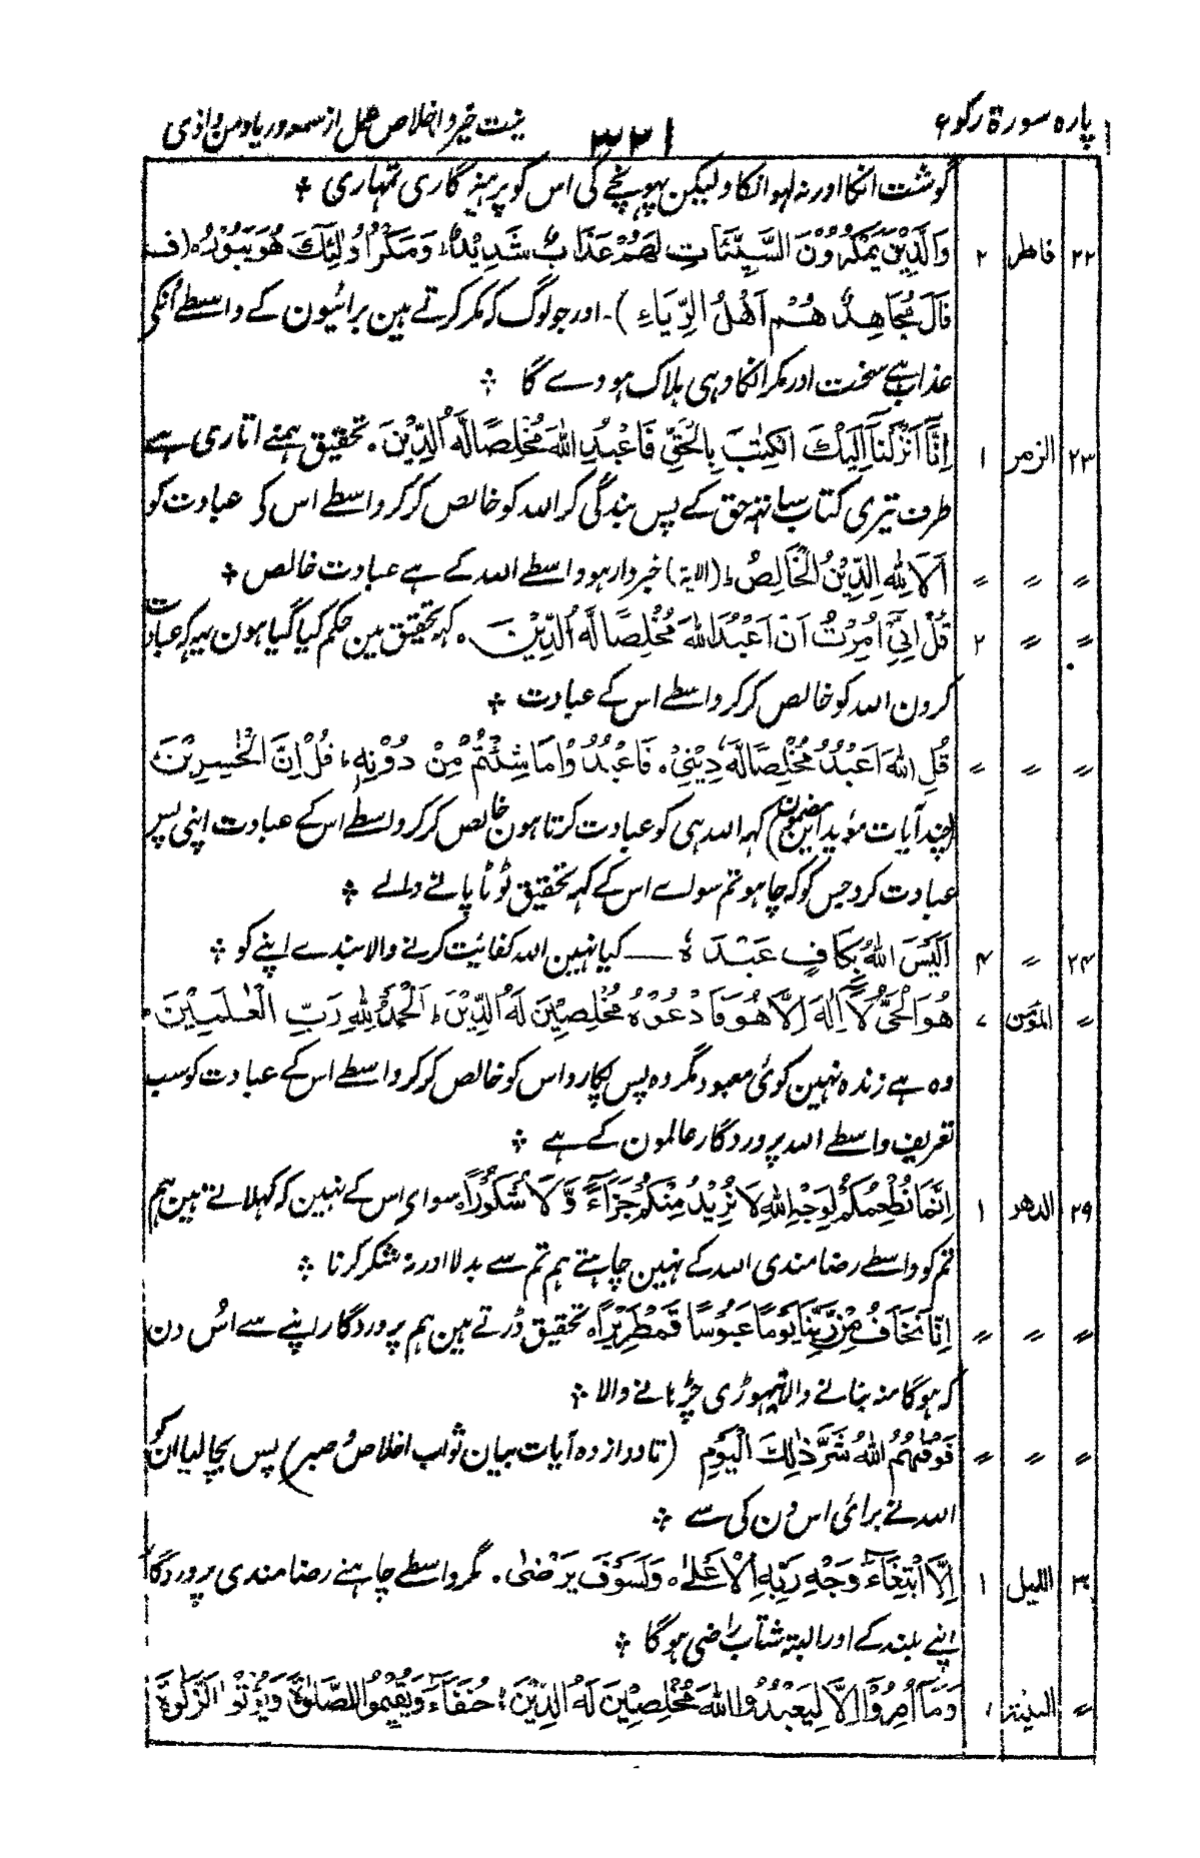 پارہ سورۃ رکوع ۳۲۱ نیت خیر و اخلاص عمل از سمعہ و ریا و من و اذی
گوشت انکا اور نہ لہو انکا ولیکن پہونچے گی اس کو پرہیز گاری تمہاری ⁘
۲۲ فاطر ۲ وَالَّذِیْنَ یَمْکُرُوْنَ السَّیِّئَاتِ لَهُمْ عَذَابٌ شَدِیْدٌ وَمَکْرُ اُولٰئِكَ هُوَ یَبُوْرُ ہ (ف
قَالَ مُجَاهِدٌ هُمْ اَهْلُ الرِّیَاءِ)۔ اور جو لوگ کہ مکر کرتے ہین برائیون کے واسطے اُنکی
عذاب ہے سخت اور مکر انکا وہی ہلاک ہووے گا ⁘
۲۳ الزمر ۱ اِنَّا اَنْزَلْنَا اِلَیْكَ الْکِتٰبَ بِالْحَقِّ فَاعْبُدِ اللّٰهَ مُخْلِصًا لَّهُ الدِّیْنَ۔ تحقیق ہمنے اتاری ہے
طرف تیری کتاب ساتھ حق کے پس بندگی کر اللہ کو خالص کر کر واسطے اس کے عبادت کو
〃 〃 〃 اَلَا لِلّٰهِ الدِّیْنُ الْخَالِصُ ط (الایۃ) خبردار ہو واسطے اللہ کے ہے عبادت خالص ⁘
〃 〃 ۲ قُلْ اِنِّیْ اُمِرْتُ اَنْ اَعْبُدَ اللّٰهَ مُخْلِصًا لَّهُ الدِّیْنَ۔ کہہ تحقیق مین حکم کیا گیا ہون یہہ کہ عبادت
کرون اللہ کو خالص کر کر واسطے اس کے عبادت ⁘
〃 〃 〃 قُلِ اللّٰهَ اَعْبُدُ مُخْلِصًا لَّهٗ دِیْنِیْ۔ فَاعْبُدُوْا مَا شِئْتُمْ مِّنْ دُوْنِهٖ، قُلْ اِنَّ الْخٰسِرِیْنَ
(چند آیات مؤید این مضمون) کہہ اللہ ہی کو عبادت کرتا ہون خالص کر کر واسطے اس کے عبادت اپنی پس
عبادت کرو جس کو کہ چاہو تم سواے اس کے کہہ تحقیق ٹوٹا پانے والے ⁘
۲۴ 〃 ۴ اَلَیْسَ اللّٰهُ بِکَافٍ عَبْدَهٗ ـــ کیا نہین اللہ کفائیت کرنے والا بندے اپنے کو ⁘
〃 المؤمن ۷ هُوَ الْحَیُّ لَا اِلٰهَ اِلَّا هُوَ فَادْعُوْهُ مُخْلِصِیْنَ لَهُ الدِّیْنَ ط اَلْحَمْدُ لِلّٰهِ رَبِّ الْعٰلَمِیْنَ۔
وہ ہے زندہ نہین کوئی معبود مگر وہ پس پکارو اس کو خالص کر کر واسطے اس کے عبادت کو سب
تعریف واسطے اللہ پروردگار عالمون کے ہے ⁘
۲۹ الدھر ۱ اِنَّمَا نُطْعِمُکُمْ لِوَجْهِ اللّٰهِ لَا نُرِیْدُ مِنْکُمْ جَزَآءً وَّلَا شُکُوْرًا ہ سوای اس کے نہین کہ کہلاتے ہین ہم
تم کو واسطے رضامندی اللہ کے نہین چاہتے ہم تم سے بدلا اور نہ شکر کرنا ⁘
〃 〃 〃 اِنَّا نَخَافُ مِنْ رَّبِّنَا یَوْمًا عَبُوْسًا قَمْطَرِیْرًا ہ تحقیق ڈرتے ہین ہم پروردگار اپنے سے اُس دن
کہ ہوگا منہ بنانے والا تیہوڑی چڑہانے والا ⁘
〃 〃 〃 فَوَقٰهُمُ اللّٰهُ شَرَّ ذٰلِكَ الْیَوْمِ (تا دوازدہ آیات بیان ثواب اخلاص و صبر) پس بچا لیا اُن کو
اللہ نے برائی اس دن کی سے ⁘
۳۰ اللیل ۱ اِلَّا ابْتِغَآءَ وَجْهِ رَبِّهِ الْاَعْلٰے ہ وَلَسَوْفَ یَرْضٰی۔ مگر واسطے چاہنے رضامندی پروردگار
اپنے بلند کے اور البتہ شتاب راضی ہوگا ⁘
〃 البینۃ ۱ وَمَا اُمِرُوْا اِلَّا لِیَعْبُدُوا اللّٰهَ مُخْلِصِیْنَ لَهُ الدِّیْنَ حُنَفَآءَ وَیُقِیْمُوا الصَّلٰوةَ وَیُؤْتُوا الزَّکٰوةَ